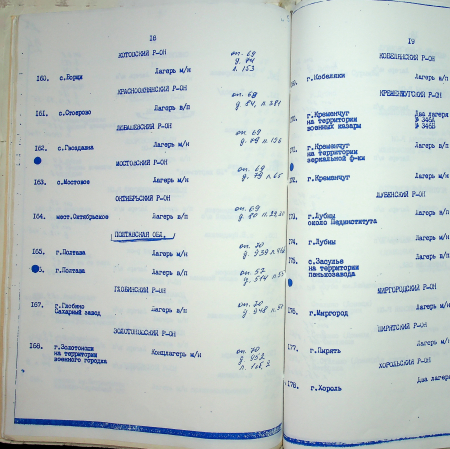 18
КОТОВСКИЙ Р-ОН
160. с.Борщи Лагерь м/н оп. 69
д. 84
л. 153
КРАСНООКНЯНСКИЙ Р-ОН
161. с.Ставрово Лагерь в/п оп. 69
д. 84, л. 381
ЛЮБАШЕВСКИЙ Р-ОН
162. с.Гвоздавка Лагерь м/н оп. 69
д. 79 л. 136
МОСТОВСКИЙ Р-ОН
163. с.Мостовое Лагерь м/н оп. 69
д. 79 л. 65
ОКТЯБРЬСКИЙ Р-ОН
164. мест.Октябрьское Лагерь в/п оп. 69
д. 80
ПОЛТАВСКАЯ ОБЛ.
165. г.Полтава Лагерь м/н оп. 70
д. 939
г.Полтава Лагерь в/п оп. 52
ГЛОБИНСКИЙ Р-ОН
167. г.Глобино
Сахарный завод Лагерь м/н оп. 70
д. 948
ЗОЛОТОНОШСКИЙ Р-ОН
168. г.Золотоноши
на территории
военного городка Концлагерь м/н оп. 70
д. 952
19
КОБЕЛЯКСКИЙ Р-ОН
г.Кобеляки Лагерь в/п
КРЕМЕНЧУГСКИЙ Р-ОН
г.Кременчуг
на территории
военных казарм Два лагеря
№ 346А
№ 346Б
г.Кременчуг
на территории
зеркальной ф-ки Лагерь в/п
г.Кременчуг Лагерь м/н
ЛУБЕНСКИЙ Р-ОН
173. г.Лубны
около Пединститута Лагерь в/п
174. г.Лубны Лагерь м/н
175. с.Засулье
на территории
пенькозавода Лагерь м/н
МИРГОРОДСКИЙ Р-ОН
176. г.Миргород Лагерь м/н
ПИРЯТСКИЙ Р-ОН
177. г.Пирять Лагерь м/н
ХОРОЛЬСКИЙ Р-ОН
178. г.Хороль Два лагеря